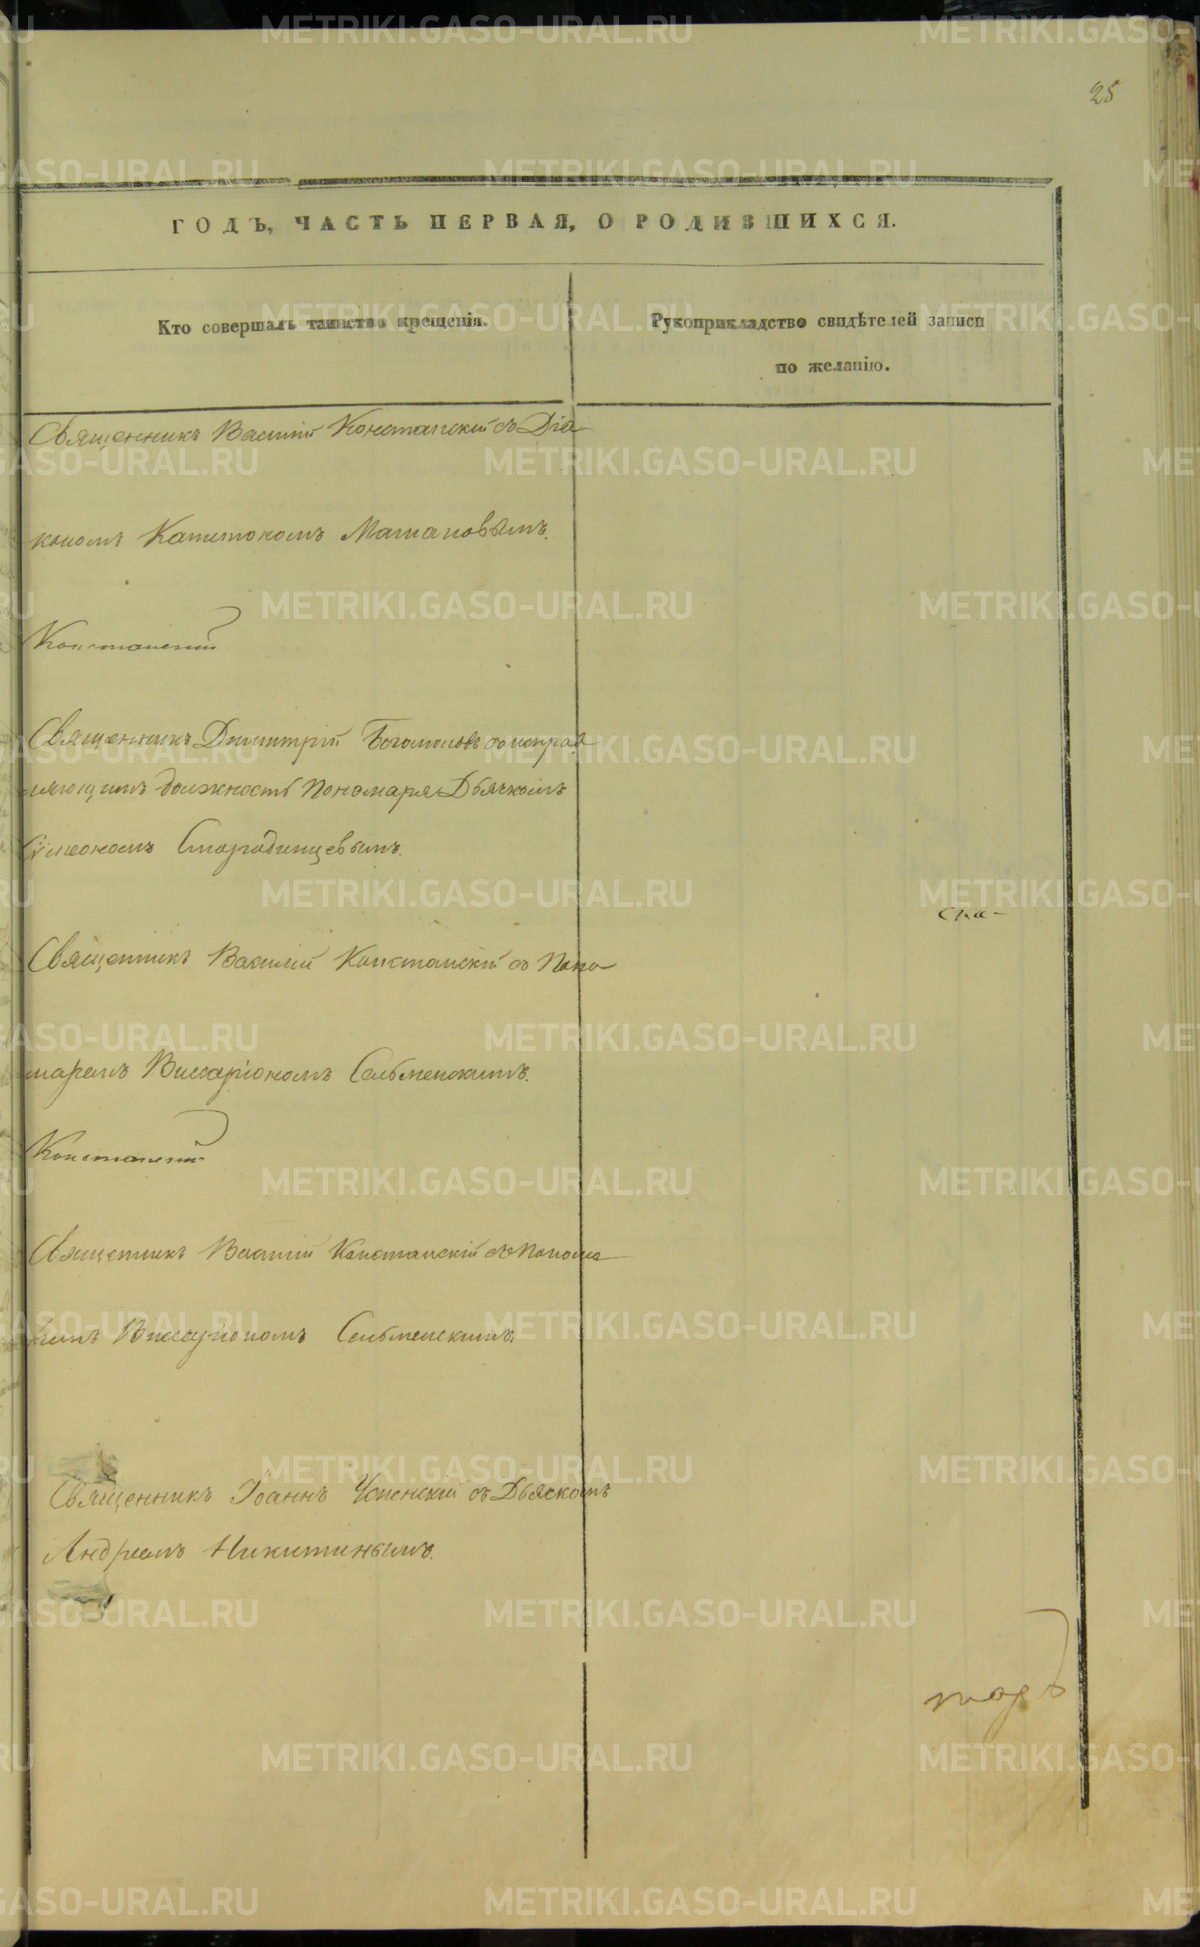 25
ГОДЪ, ЧАСТЬ ПЕРВАЯ, О РОДИВШИХСЯ.
Кто совершалъ таинство крещенія.
Рукоприкладство свидѣтелей записи
по желанію.
Священникъ Василій Констанскій съ Діа-
кономъ Капитономъ
Констанскій
Священникъ Димитрій Богомоловъ
должность Пономаря Дьячкомъ
Симеономъ Смородинцевымъ.
Ска-
Священникъ Василій Констанскій съ Поно-
маремъ Виссаріономъ Сельменскимъ.
Констанскій
Священникъ Василій Констанскій съ Понома-
Виссаріономъ Сельменскимъ.
Священникъ Іоаннъ Успенскій съ Дьячкомъ
Андреемъ Никитинымъ.
METRIKI.GASO-URAL.RU